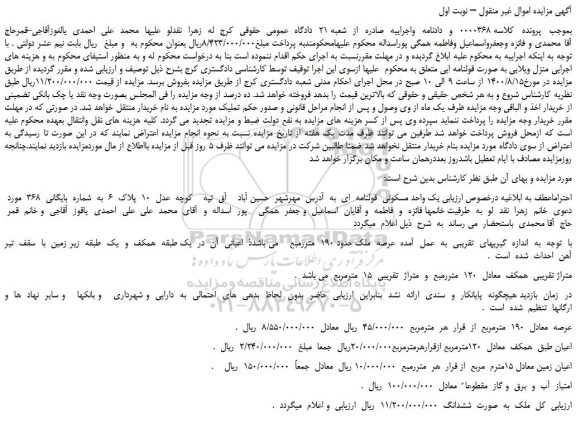 آگهی مزایده اموال غیر منقول – نوبت اول
بموجب پرونده کلاسه ۰۰۰۰۳۶۸ و دادنامه واجراییه صادره از شعبه ۲۱ دادگاه عمومی حقوقی کرج له زهرا نقدلو علیها محمد علی احمدی یالقوزآقاجی-قمرحاج
آقا محمدی و فائزه وجعفرواسماعیل وفاطمه همگی پوراسداله محکوم علیهامحکومندبه پرداخت مبلغ۸/۴۳۳/۰۰۰/۰۰۰ریال بعنوان محکوم به و مبلغ ریال بابت نیم عشر دولتی . با
توجه به اینکه اجراییه به محکوم علیه ابلاغ گردیده و در مهلت مقررنسبت به اجرای حکم اقدام ننموده است بنا به درخواست محکوم له و به منظور استیفای محکوم به و هزینه های
اجرایی منزل ویلایی به صورت قولنامه ایی متعلق به محکوم علیها ازسوی این اجرا توقیف توسط کارشناسی دادگستری کرج بشرح ذیل توصیف و ارزیابی شده و مقرر گردیده از طریق
مزایده در مورخ۱۴۰۰/۸/۱۵ از ساعت ۹ الی ۱۰ صبح در محل اجرای احکام مدنی شعبه دادگستری کرج از طریق مزایده بفروش برسد. مزایده از قیمت ۱۱/۲۰۰/۰۰۰/۰۰۰ریال طبق
نظریه کارشناس شروع و به هر شخص حقیقی و حقوقی که بالاترین قیمت را بدهد فروخته خواهد شد. ده درصد از وجه مزایده را فی المجلس بصورت وجه نقد یا چک بانکی تضمینی
از خریدار اخذ و الباقی وجه مزایده ظرف یک ماه از وی وصول و پس از انجام مراحل قانونی و صدور حکم تملیک مورد مزایده به نام خریدار منتقل خواهد شد. در صورتی که در مهلت
مقرر خریدار وجه مزایده را پرداخت ننماید سپرده وی پس از کسر هزینه های مزایده به نفع دولت ضبط و مزایده تجدید می گردد. کلیه هزینه های نقل وانتقال بعهده محکوم علیه
است که ازمحل فروش پرداخت خواهد شد طرفین می توانند ظرف مدت یک هفته از تاریخ مزایده نسبت به نحوه انجام مزایده اعتراض نمایند که در این صورت تا رسیدگی به
اعتراض از سوی دادگاه مورد مزایده بنام خریدار منتقل نخواهد شد ضمنا طالبین شرکت در مزایده می توانند ظرف ۵ روز قبل از مزایده بااطلاع از مال موردمزایده بازدید نمایند.چنانچه
روزمزایده مصادف با ایام تعطیل باشدروز بعددرهمان ساعت و مکان برگزار خواهد شد
مورد مزایده و بهای آن طبق نظر کارشناس بدین شرح است:
احتراماعطف به ابلاغیه درخصوص ارزیابی یک واحد مسکونی قولنامه ای به آدرس مهرشهر حسین آباد آق تپه کوچه عدل ۱۰ پلاک ۶ به شماره بایگانی ۳۶۸ مورد
دعوی خانم زهرا نقد لو به طرفیت خانمها فائزه و فاطمه و آقایان اسماعیل و جعفر همگی پور اسداله و آقای محمد علی علی احمدی یاقوز آقاجی و خانم قمر
حاج آقا محمدی باستحضار می رساند به شرح ذیل اعلام میگردد
با توجه به اندازه گیریهای تقریبی به عمل آمده عرصه ملک حدود ۱۹۰ مترمربع می باشدذ اعیانی آن در یک طبقه همکف و یک طبقه زیر زمین با سقف تیر
آهن احداث شده است .
متراژ تقریبی همکف معادل ۱۲۰ مترمربع و متراژ تقریبی ۱۵ مترمربع می باشد .
در زمان بازدید هیچگونه پایانکار و سندی ارائه نشد بنابراین ارزیابی حاضر بدون لحاظ بدهی های احتمالی به دارایی و شهرداری و بانکها و سایر نهاد ها و
ارگانها تنظیم شده است .
عرصه معادل ۱۹۰ مترمربع از قرار هر مترمربع ۴۵/۰۰۰/۰۰۰ ریال معادل ۸/۵۵۰/۰۰۰/۰۰۰ ریال .
اعیان طبق همکف معادل ۱۲۰مترمربع ازقرارهرمترمربع۲۰/۰۰۰/۰۰۰ریال جمعا مبلغ ۲/۲۴۰/۰۰۰/۰۰۰ ریال .
اعیان زمین معادل ۱۵متر مربع از قرار هر مترربع ۱۰/۰۰۰/۰۰۰ ریال معادل جمعاً ۱۵۰/۰۰۰/۰۰۰ ریال .
امتیاز آب و برق و گاز مقطوعا" معادل ۱۰۰/۰۰۰/۰۰۰ ریال .
ارزیابی کل ملک به صورت ششدانگ ۱۱/۲۰۰/۰۰۰/۰۰۰ ریال ارزیابی و اعلام میگردد .
ParsNamadData
۰۲۱-۸۸۳۴۹۶۷۰-۵